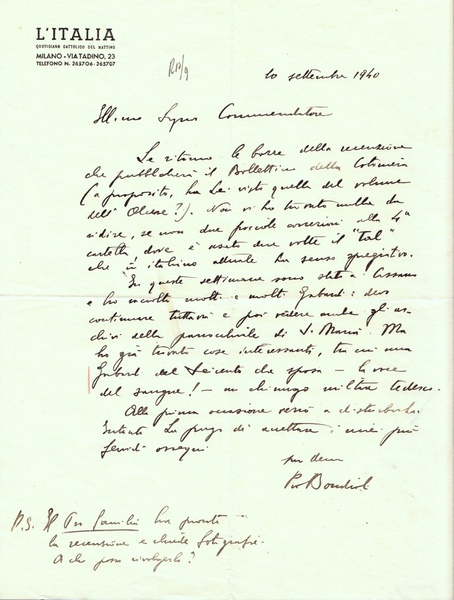 L'ITALIA
QUOTIDIANO CATTOLICO DEL MATTINO
MILANO - VIA TADINO, 23
TELEFONO N. 265706 - 265707
10 settembre 1940
Ill.mo Signor Commendatore
Le ritorno le bozze della recensione
che pubblicherà il Bollettino della
(a proposito, ha Lei visto quella del volume
dell' ?). Non vi ho trovato nulla da
ridire, se non due piccole correzioni alla 4ª
cartella, dove è usato due volte il "tal"
che in italiano attuale ha senso spregiativo.
In queste settimane sono stato a Cassano
e ho raccolto molti e molti Gabardi: devo
continuare tuttavia e poi vedere anche gli ar-
chivi della parrocchiale di S. Maria. Ma
ho già trovato cose interessanti, tra cui una
Gabard del Seicento che sposa - la voce
del sangue! - un chirurgo militare tedesco.
Alla prima occasione verrò a disturbarla.
Intanto La prego di accettare i miei più
fervidi ossequi
P.S. Il Pro Familia ha pronta
la recensione e chiede fotografie.
A chi posso rivolgerlo?